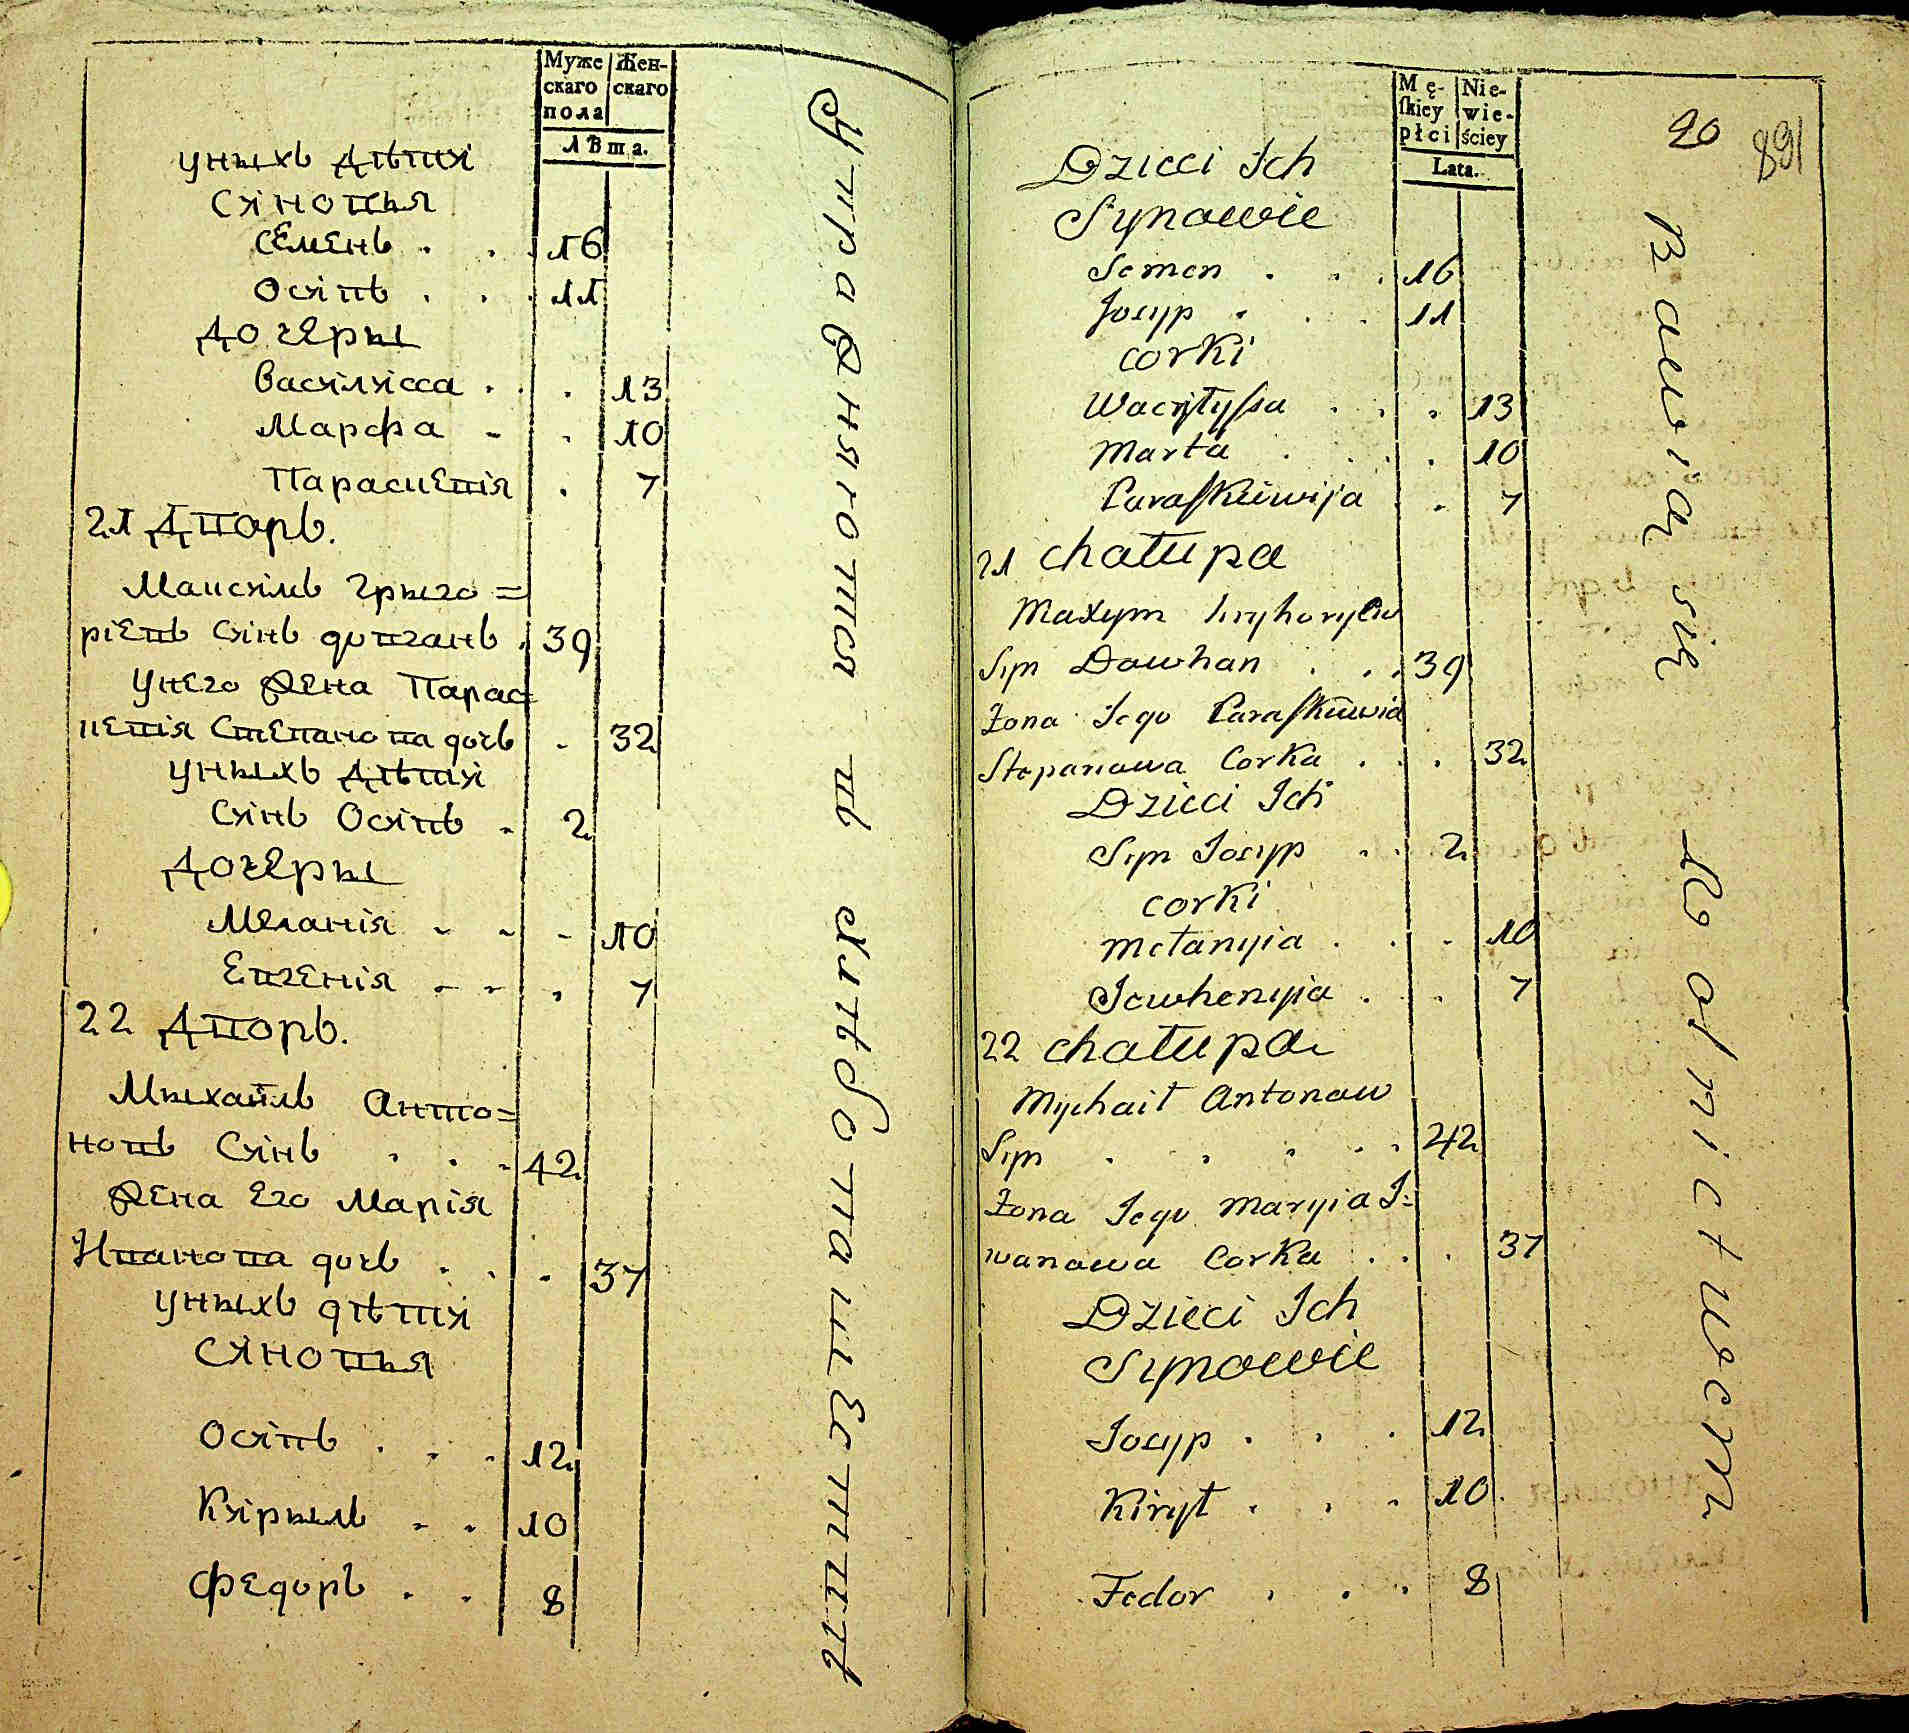 Муже Жен-
скаго скаго
пола
Лѣта.
Уныхъ Дѣтй
Сйновья
Семенъ . . . 16
Осйпъ . . . 11
Дочеры
Васйлйсса . . . 13
Марфа - . 10
Парасцевія . 7
21 Дворъ.
Мацсймъ Грыго=
ріевъ Сйнъ довганъ . 39
Унего Жена Парас
цевія Степанова дочь . 32
Уныхъ Дѣтй
Сйнъ Осйпъ . 2
Дочеры
Меланія - - - 10
Евгенія - - . 7
22 Дворъ.
Мыхайлъ Анто=
новъ Сйнъ . . . 42
Жена Его Марія
Ивановна дочь . . . 37
Уныхъ дѣтй
Сйновья
Осйпъ . . . 12
Кйрылъ - - 10
Федоръ . . 8
Упражняются въ хлѣбопашествѣ
Mę- Nie-
ſkiey wie-
płci ściey
Lata.
20
891
Dzieci Ich
Synowie
Semen . . . 16
Josyp . . . 11
corki
Wacyłyſsa . . . 13
Marta . . . 10
Paraſkiwija . 7
21 chałupa
Maxym hryhoryiw
Syn Dowhan . . . 39
Żona Jego Paraſkiwia
Stepanowa Corka . . . 32
Dzieci Ich
Syn Josyp . . 2
corki
Mełanyia . . . 10
Jewhenyia . . 7
22 chałupa
Mychaił Antonow
Syn . . . . . 42
Żona Jego Maryia I=
wanowa Corka . . . 37
Dzieci Ich
Synowie
Josyp . . . 12
Kirył . . . 10
Fedor . . . 8
Bawią się Rolnictwem